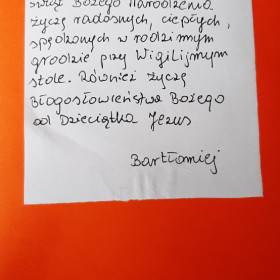 Świąt Bożego Narodzenia
życzę radosnych, ciepłych,
spędzonych w rodzinnym
grodzie przy Wigilijnym
stole. Również życzę
Błogosławieństwa Bożego
od Dzieciątka Jezus
Bartłomiej